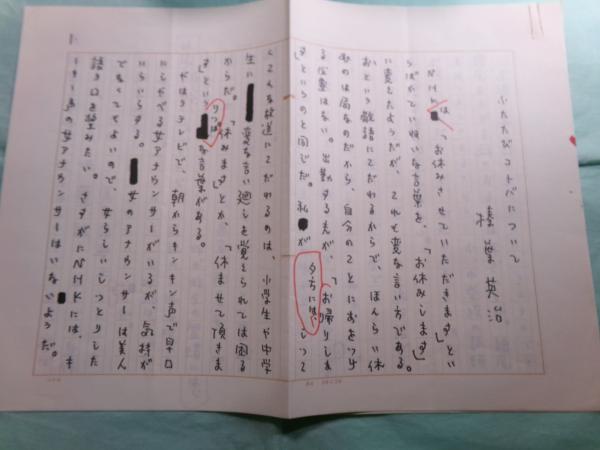 ふたたびコトバについて
榛葉英治
NHKは、「お休みさせていただきます」とい
うばかていねいな言葉を、「お休みします」
に変えたようだが、これも変な言い方である。
おという敬語にこだわるからで、ほんらい休
むのは局なのだから、自分のことにおをつけ
る必要はない。出勤する夫が、「お帰りしま
すというのと同じだ。私が
夕方には、
しつ
こくこんな放送にこだわるのは、小学生や中学
生に変な言い廻しを覚えられては困る
からだ。「休みます」とか、「休ませて頂きま
す」という
りっぱ
な言葉がある。
やはりテレビで、朝からキンキン声で早口
にしゃべる女アナウンサーがいるが、気持が
いらいらする。女のアナウンサーは美人
でなくてもよいので、女らしいしっとりした
語り口を望みたい。さすがにNHKには、キ
ンキン声の女アナウンサーはいないようだ。